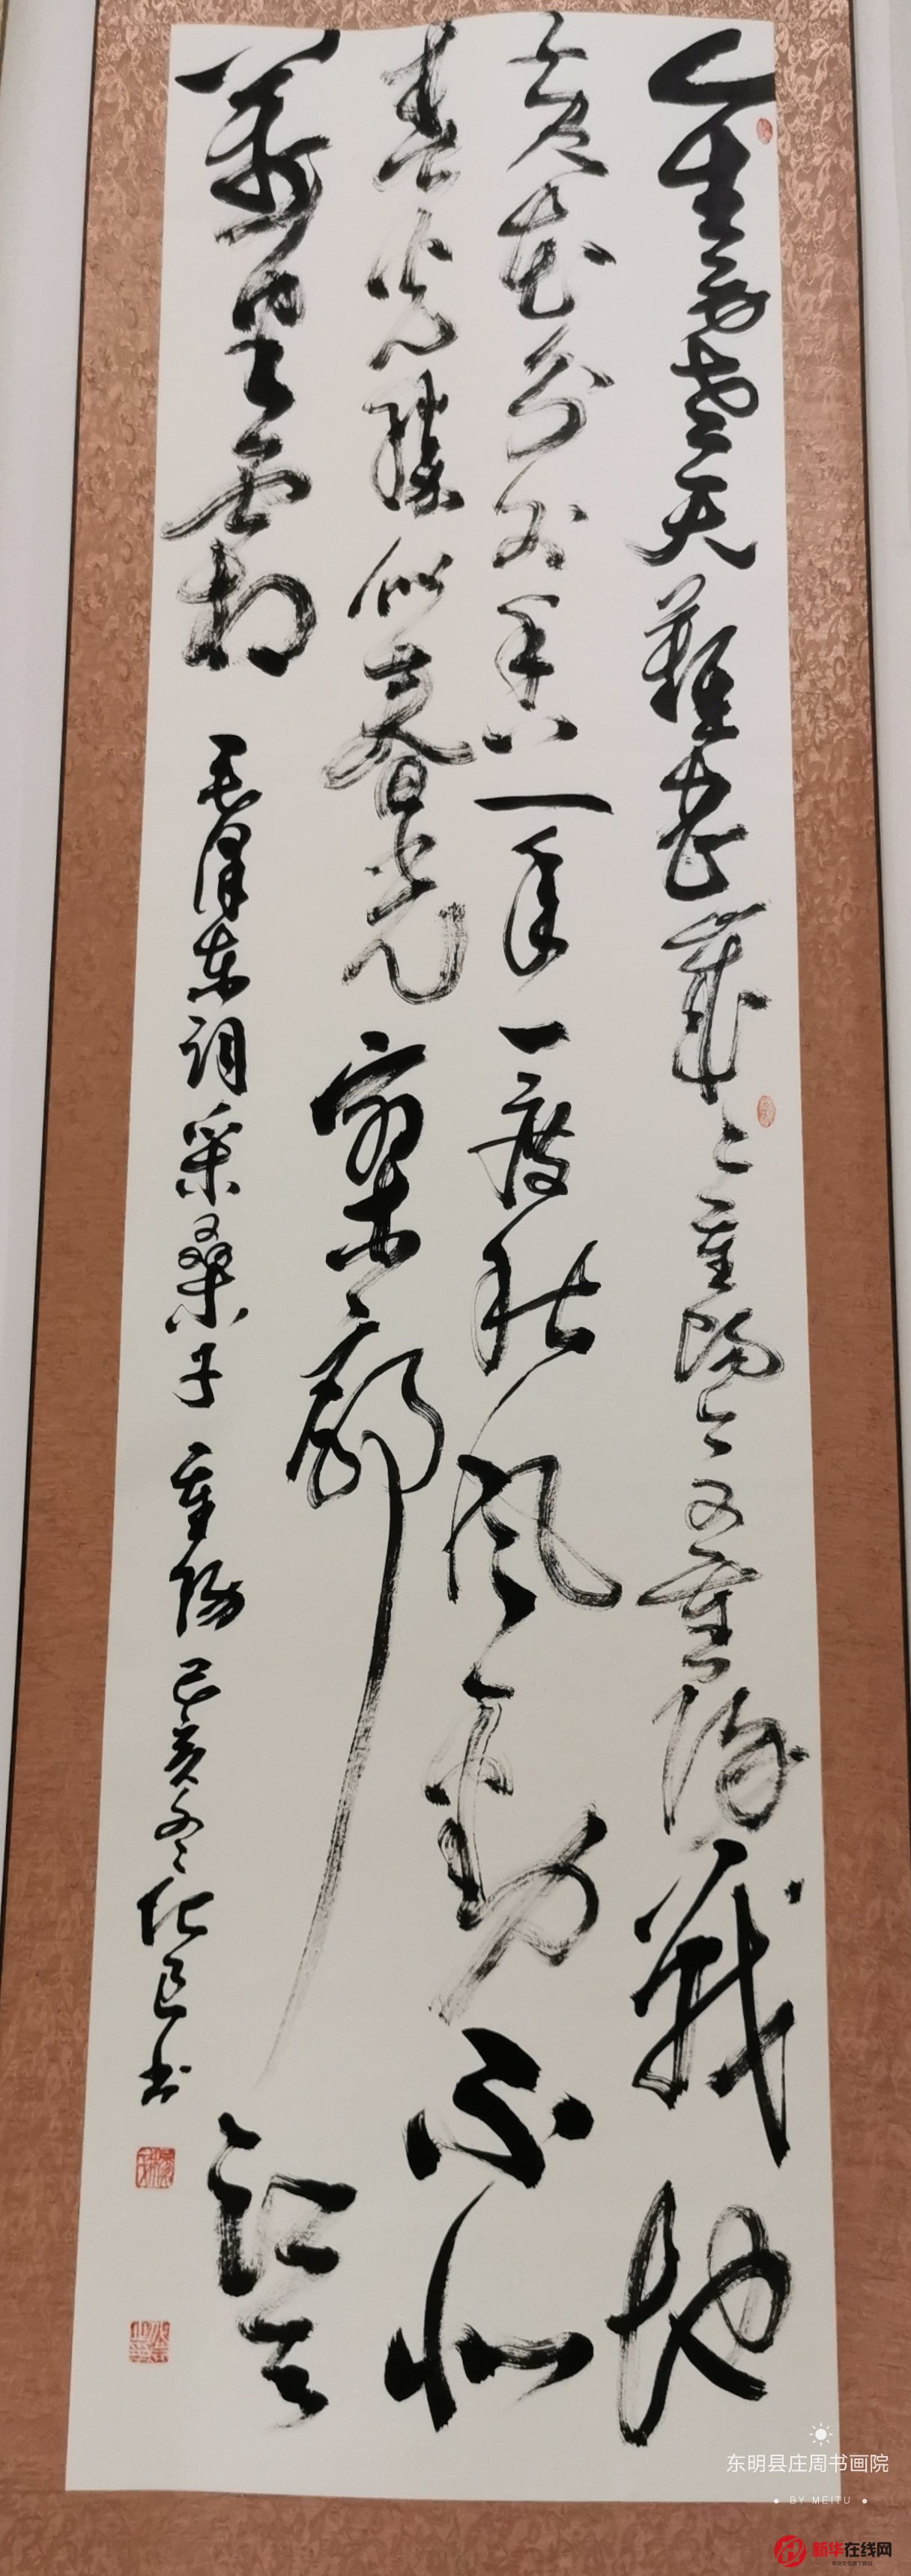 人生易老天難老歲々重陽今又重陽戰地
黃花分外香一年一度秋風勁不似
春光勝似春光寥廓江天
萬里霜
毛泽东词采桑子 重阳 己亥冬 书
东明县庄周书画院
BY MEITU
新华在线网